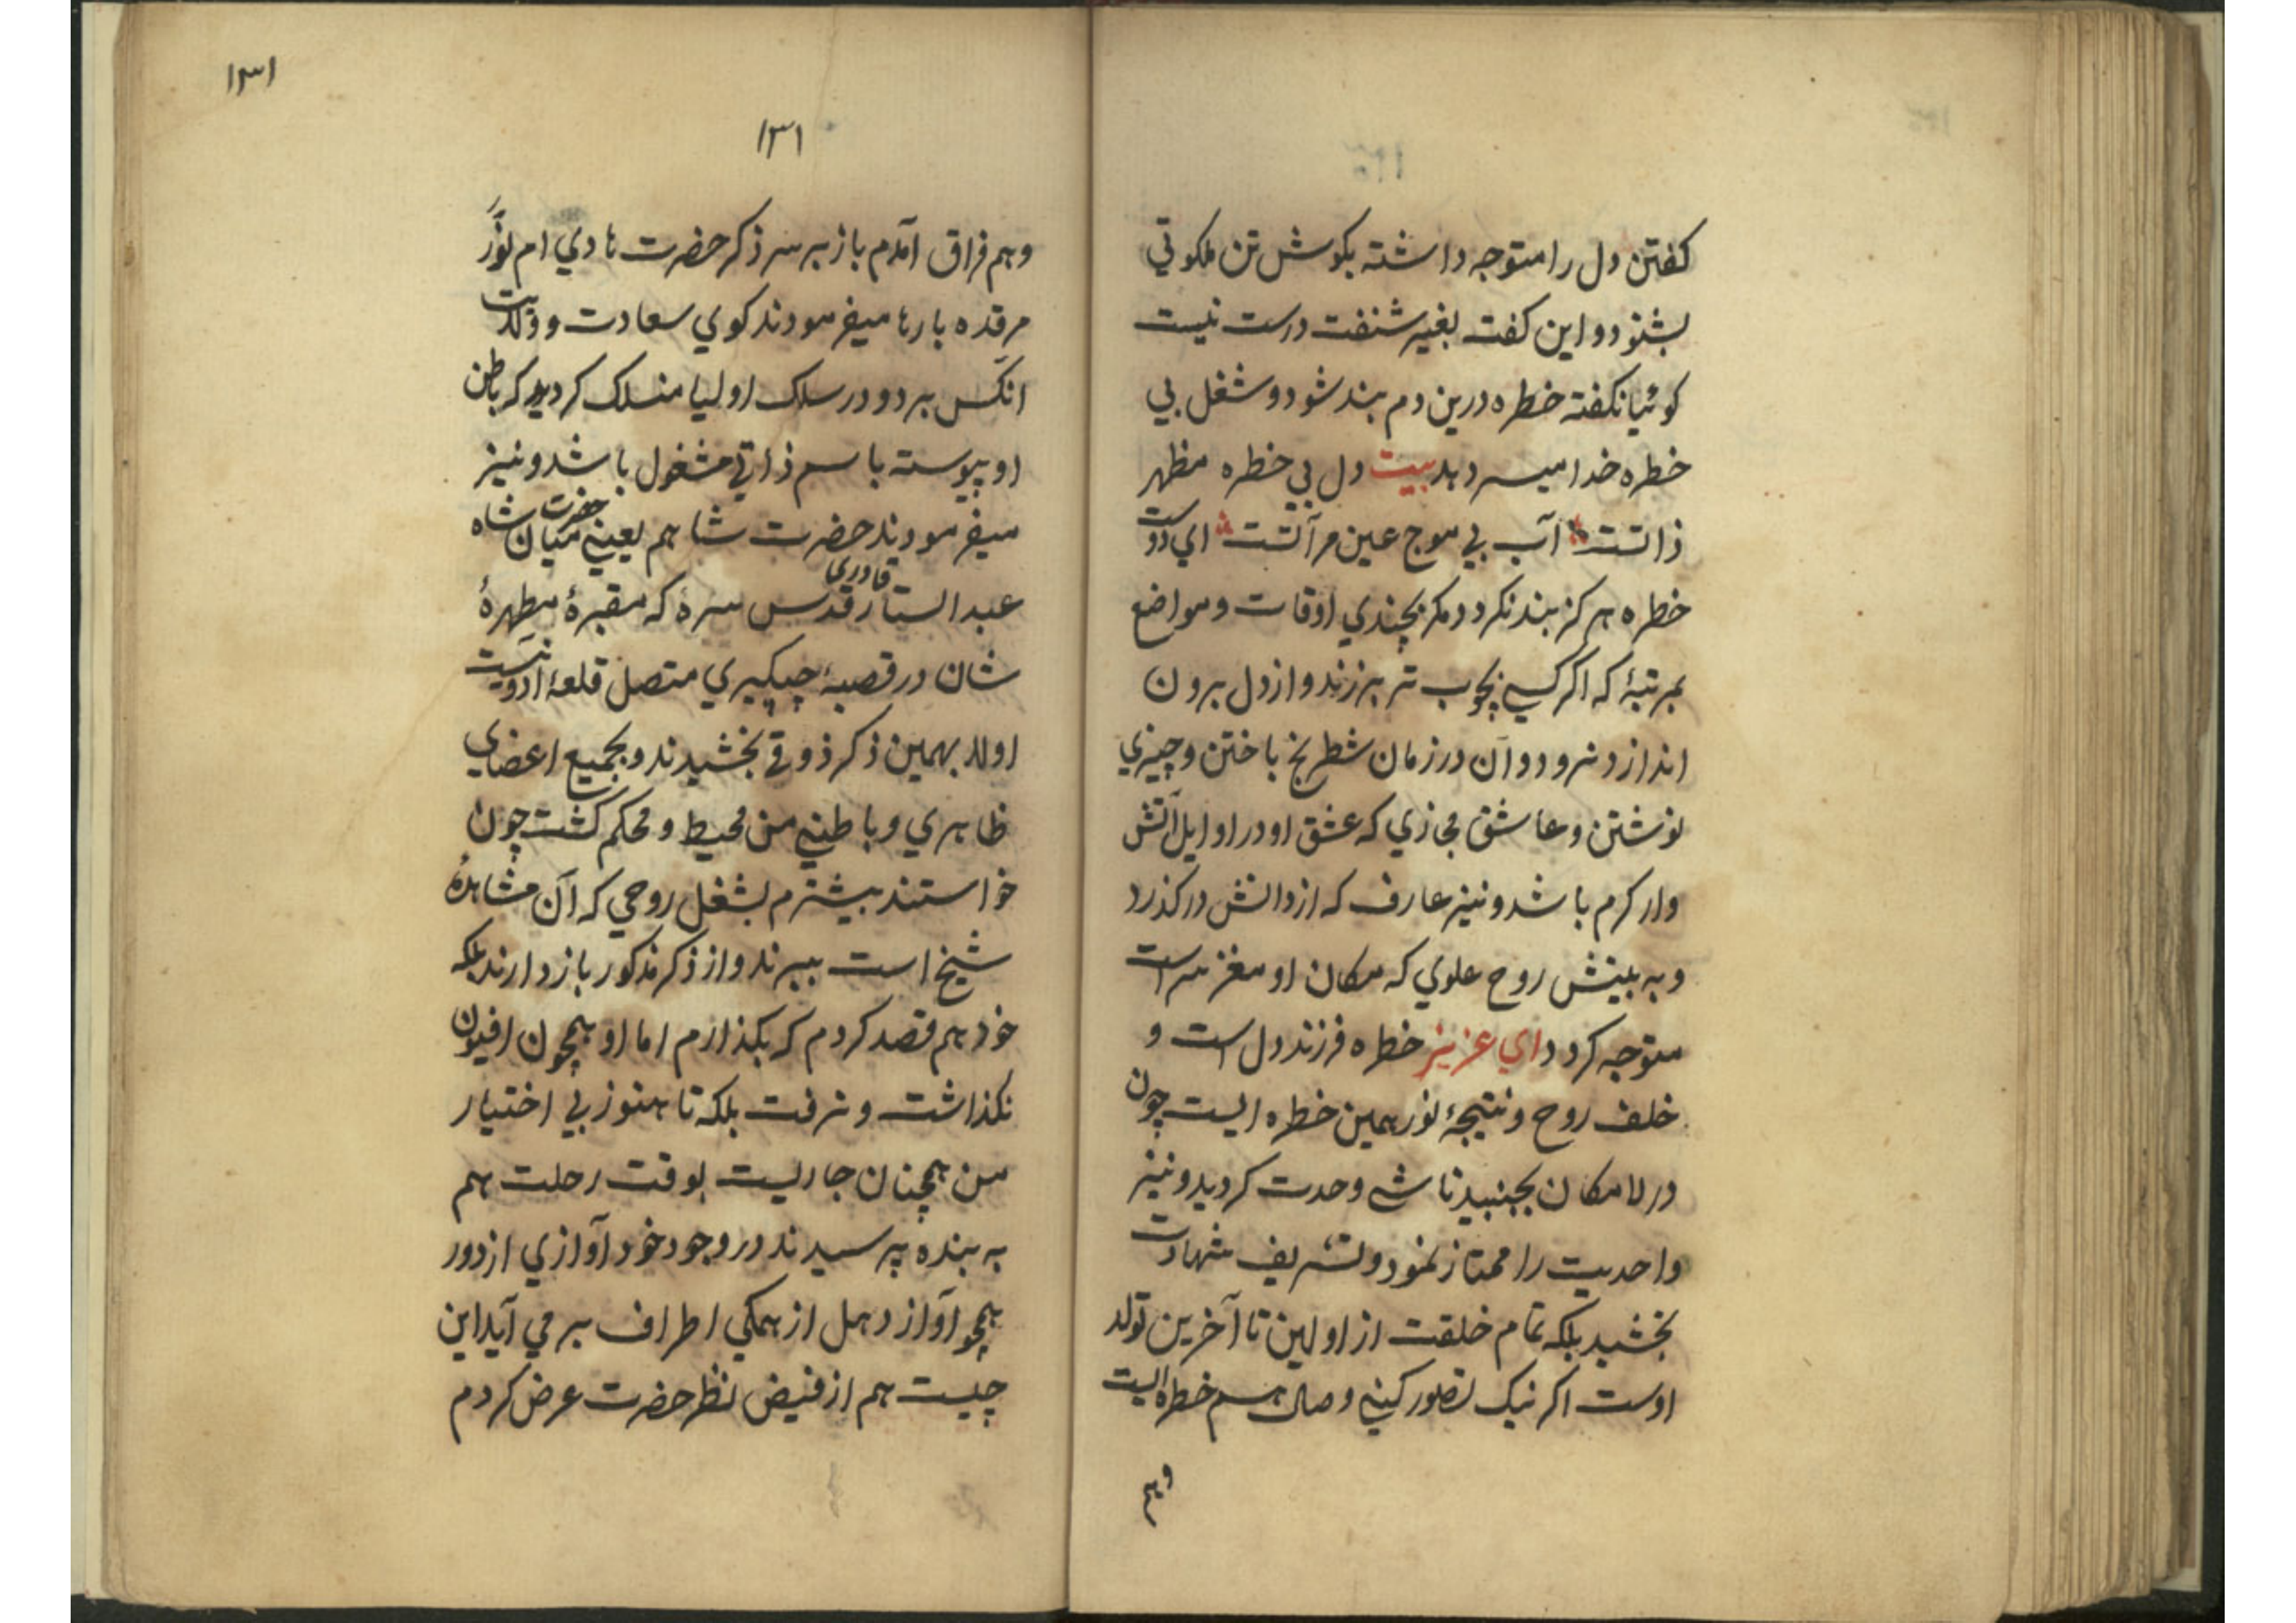 کفتن دل را متوجه داشته بکوش تن ملکوتي
بشنود و این کفت بغیر شنفت درست نیست
کوئیا نکفته خطره درین دم بند شود و شغل بي
خطره خدا میسر دهد بیت دل بي خطره مظهر
ذاتست آب بي موج عین مرآتست اي دوست
خطره هرکز بند نکردد مکر بچندي اوقات و مواضع
بمرتبهٔ که اکر کسے بچوب تر بزند و از دل برون
اندازد نرود و آن در زمان شطرنج باختن و چیزي
نوشتن و عاشق مجازي که عشق او در اوایل آتش
وار کرم باشد و نیز عارف که از دانش درکذرد
و به بینش روح علوي که مکان او مغز سر است
متوجه کردد اي عزیز خطره فرزند دل است و
خلف روح و نتیجهٔ نور همین خطره ایست چون
در لامکان بجنبید ناشے وحدت کردید و نیز
واحدیت را ممتاز نمود و تشریف شهادت
بخشید بلکه تمام خلقت از اولین تا آخرین تولد
اوست اکر نیک تصور کنے وصال هم خطره ایست
و هم
١٣١
١٣١
و هم فراق آمدم باز بر سر ذکر حضرت هادي ام نوّر
مرقده بارها میفرمودند کوي سعادت و ولایت
آنکس برد و در سلک اولیا منسلک کردید که باطن
او پیوسته باسم ذاتي مشغول باشد و نیز
میفرمودند حضرت شاهم یعنے حضرت میان شاه
عبد الستار قادري قدس سره که مقبرهٔ مطهرهٔ
شان در قصبهٔ چپکیري متصل قلعهٔ
اولا بهمین ذکر ذوقے بخشیدند و بجمیع اعضاي
ظاهري و باطنے من محیط و محکم کشت چون
خواستند بیشترم بشغل روحي که آن مشاهدهٔ
شیخ است ببرند و از ذکر مذکور باز دارند بلکه
خود هم قصد کردم که بکذارم اما او همچون افیون
نکذاشت و نرفت بلکه تا هنوز بي اختیار
من همچنان جاریست بوقت رحلت هم
به بنده پرسیدند در وجود خود آوازي از دور
همچو آواز دهل از همکي اطراف بر مي آید این
چیست هم از فیض نظر حضرت عرض کردم